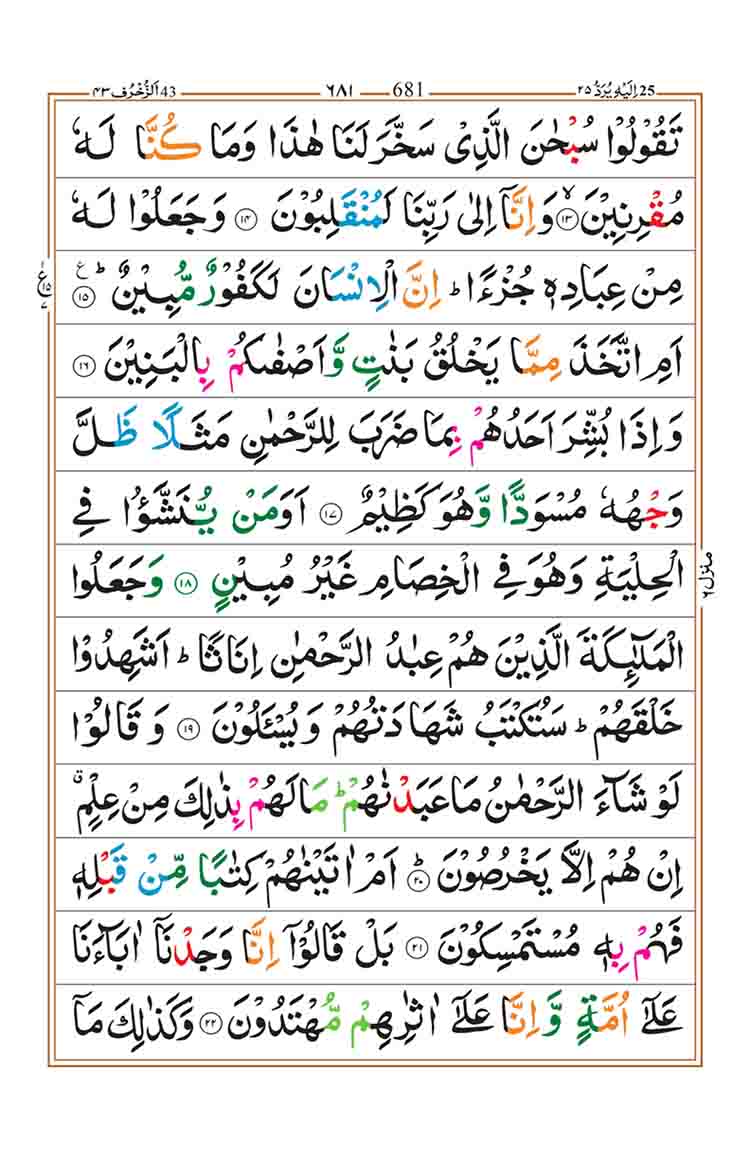 43 اَلزُّخْرُف ٤٣ 681 ٦٨١ 25 اِلَيْهِ يُرَدُّ ٢٥
تَقُوْلُوْا سُبْحٰنَ الَّذِىْ سَخَّرَ لَنَا هٰذَا وَمَا كُنَّا لَهٗ
مُقْرِنِيْنَ ۙ‏﴿۱۳﴾ وَاِنَّاۤ اِلٰى رَبِّنَا لَمُنْقَلِبُوْنَ ﴿۱۴﴾ وَجَعَلُوْا لَهٗ
مِنْ عِبَادِهٖ جُزْءًا ؕ اِنَّ الْاِنْسَانَ لَكَفُوْرٌ مُّبِيْنٌ ؕ ﴿۱۵﴾ ع
اَمِ اتَّخَذَ مِمَّا يَخْلُقُ بَنٰتٍ وَّاَصْفٰٮكُمْ بِالْبَنِيْنَ ﴿۱۶﴾
وَاِذَا بُشِّرَ اَحَدُهُمْ بِمَا ضَرَبَ لِلرَّحْمٰنِ مَثَلًا ظَلَّ
وَجْهُهٗ مُسْوَدًّا وَّهُوَ كَظِيْمٌ ﴿۱۷﴾ اَوَمَنْ يُّنَشَّؤُا فِى
الْحِلْيَةِ وَهُوَ فِى الْخِصَامِ غَيْرُ مُبِيْنٍ ﴿۱۸﴾ وَجَعَلُوا
الْمَلٰٓئِكَةَ الَّذِيْنَ هُمْ عِبٰدُ الرَّحْمٰنِ اِنَاثًا ؕ اَشَهِدُوْا
خَلْقَهُمْ ؕ سَتُكْتَبُ شَهَادَتُهُمْ وَيُسْـَٔلُوْنَ ﴿۱۹﴾ وَقَالُوْا
لَوْ شَآءَ الرَّحْمٰنُ مَا عَبَدْنٰهُمْ ؕ مَا لَهُمْ بِذٰلِكَ مِنْ عِلْمٍ ۗ
اِنْ هُمْ اِلَّا يَخْرُصُوْنَ ؕ ﴿۲۰﴾ اَمْ اٰتَيْنٰهُمْ كِتٰبًا مِّنْ قَبْلِهٖ
فَهُمْ بِهٖ مُسْتَمْسِكُوْنَ ﴿۲۱﴾ بَلْ قَالُوْۤا اِنَّا وَجَدْنَاۤ اٰبَآءَنَا
عَلٰٓى اُمَّةٍ وَّاِنَّا عَلٰٓى اٰثٰرِهِمْ مُّهْتَدُوْنَ ﴿۲۲﴾ وَكَذٰلِكَ مَاۤ
منزل ٦